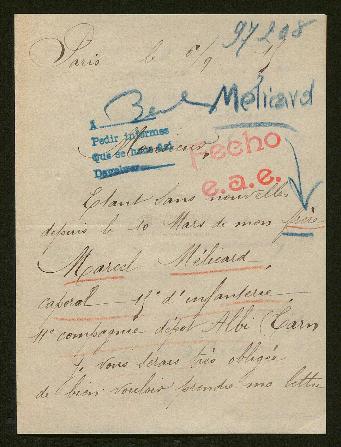 97298
Paris le 8/9
Mélicard
A
Pedir informes
Que se hace así
Monsieur,
Hecho
e.a.e.
Etant sans nouvelles
depuis le 10 Mars de mon frère
Marcel Mélicard
caporal — 15e d'infanterie —
11e compagnie dépôt Albi (Tarn
je vous serais très obligée
de bien vouloir prendre ma lettre